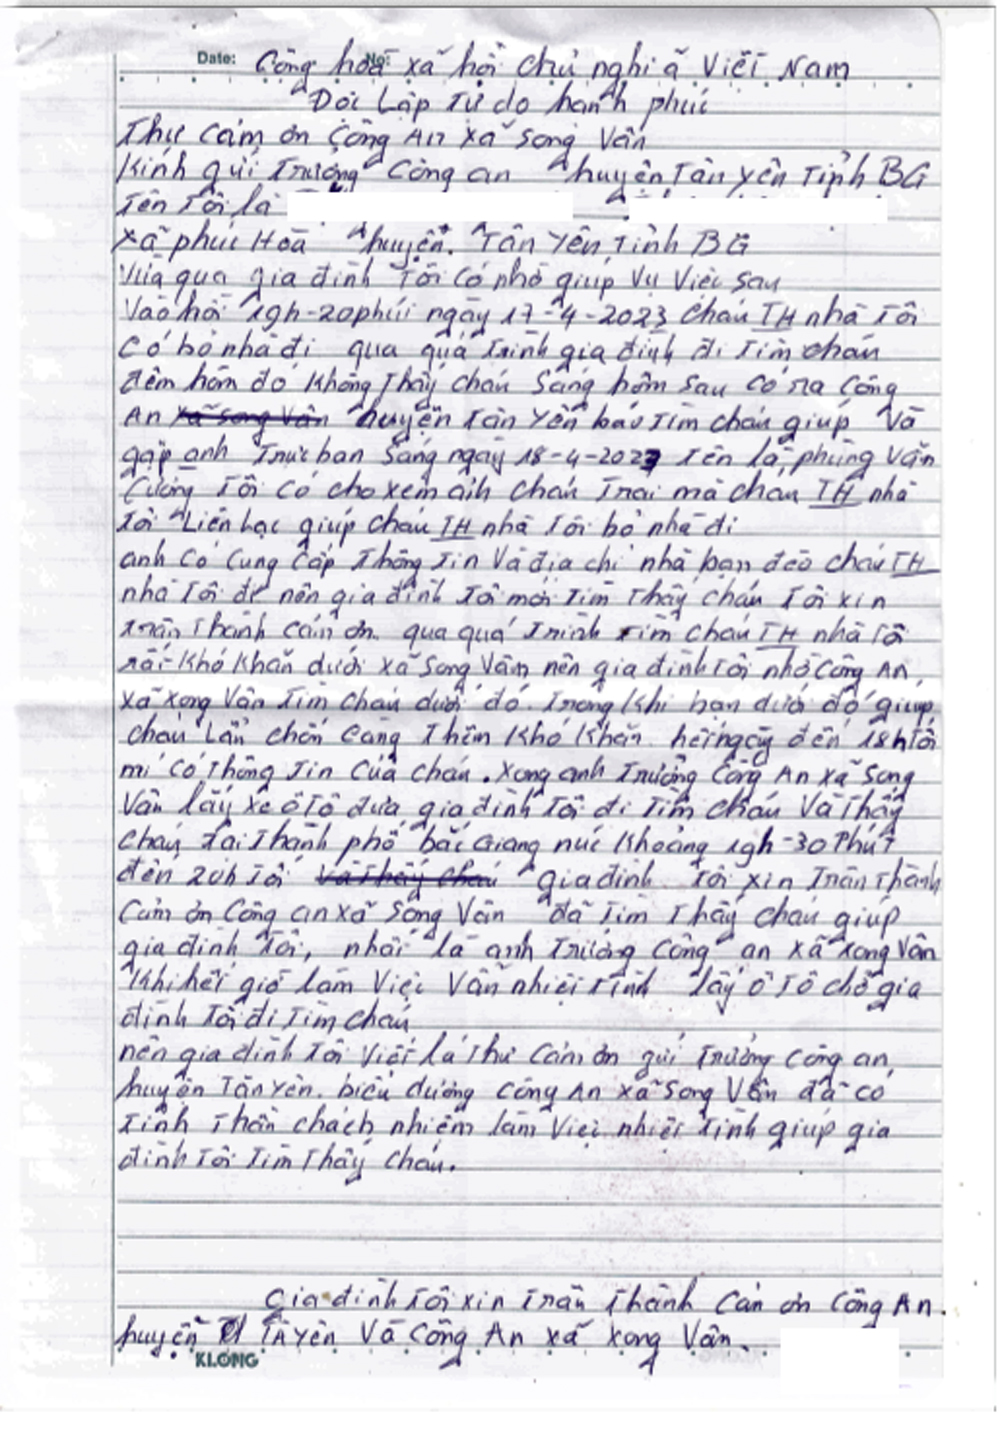 Date: No:
Cộng hoà xã hội chủ nghĩa Việt Nam
Độc Lập Tự do hạnh phúc
Thư cảm ơn Công An xã Song Vân
Kính gửi Trưởng Công an huyện Tân Yên Tỉnh BG
Tên Tôi là
xã phúc Hoà huyện. Tân Yên Tỉnh BG
Vừa qua gia đình Tôi có nhờ giúp vụ việc sau
Vào hồi 19h-20phút ngày 17-4-2023 cháu TH nhà Tôi
có bỏ nhà đi qua quá trình gia đình đi Tìm cháu
đêm hôm đó không Thấy cháu sáng hôm sau có ra Công
An xã Song Vân huyện Tân Yên báo Tìm cháu giúp Và
gặp anh Trực ban sáng ngày 18-4-2023 Tên là, phùng Văn
Cường Tôi có cho xem ảnh cháu Trai mà cháu TH nhà
Tôi Liên hạc giúp cháu TH nhà Tôi bỏ nhà đi
anh có Cung cấp Thông Tin Và địa chỉ nhà bạn đèo cháu TH
nhà Tôi để nên gia đình Tôi mới Tìm Thấy cháu Tôi xin
trân Thành cảm ơn. qua quá Trình Tìm cháu TH nhà Tôi
rất khó khăn dưới xã Song Vân nên gia đình Tôi nhờ Công An,
xã xong Vân Tìm cháu dưới đó. Trong khi bạn dưới đó giúp
cháu lẩn chốn càng Thêm khó khăn hết ngày đến 18h Tôi
mí có Thông Tin của cháu. xong anh Trưởng Công An xã Song
Vân lấy xe ô Tô đưa gia đình Tôi đi Tìm cháu Và Thấy
cháu Tại Thành phố bắc Giang núc khoảng 19h-30 Phút
đến 20h Tối và Thấy cháu gia đình Tôi xin Trân Thành
Cảm ơn Công an xã Song Vân đã Tìm Thấy cháu giúp
gia đình Tôi, nhất là anh Trưởng Công an xã xong Vân
khi hết giờ làm Việc Vẫn nhiệt Tình lấy ô Tô chở gia
đình Tôi đi Tìm cháu
nên gia đình Tôi Viết lá Thư Cảm ơn gửi Trưởng Công an,
huyện Tân Yên. biểu dương Công An xã Song Vân đã có
Tinh Thần chách nhiệm làm Việc nhiệt Tình giúp gia
đình Tôi Tìm Thấy cháu.
Gia đình Tôi xin Trân Thành Cản ơn Công An.
huyện TÂYên Và Công An xã xong Vân
KLONG